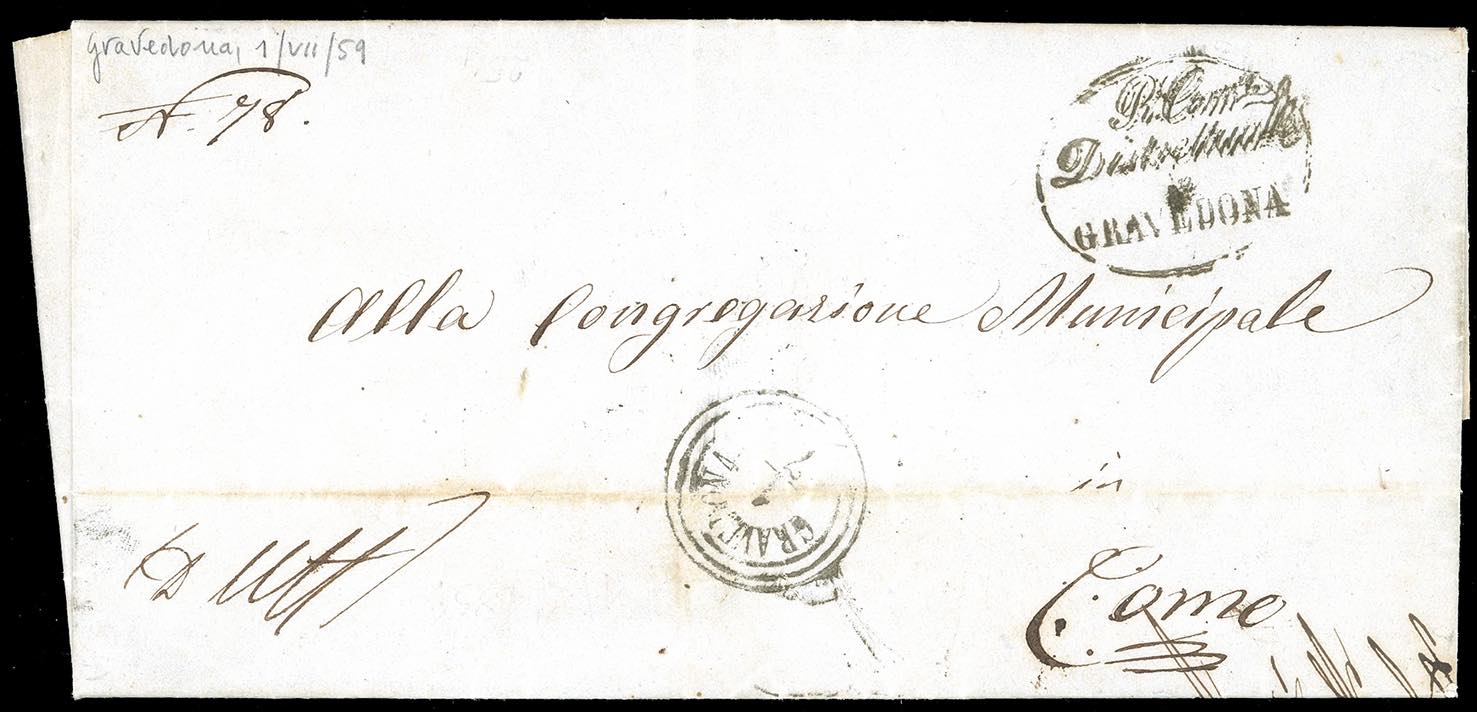 Gravedona, 1/VII/59
N. 78.
R. Com.
Distrettuale
GRAVEDONA
Alla Congregazione Municipale
GRAVEDONA
in
D Uff
Como